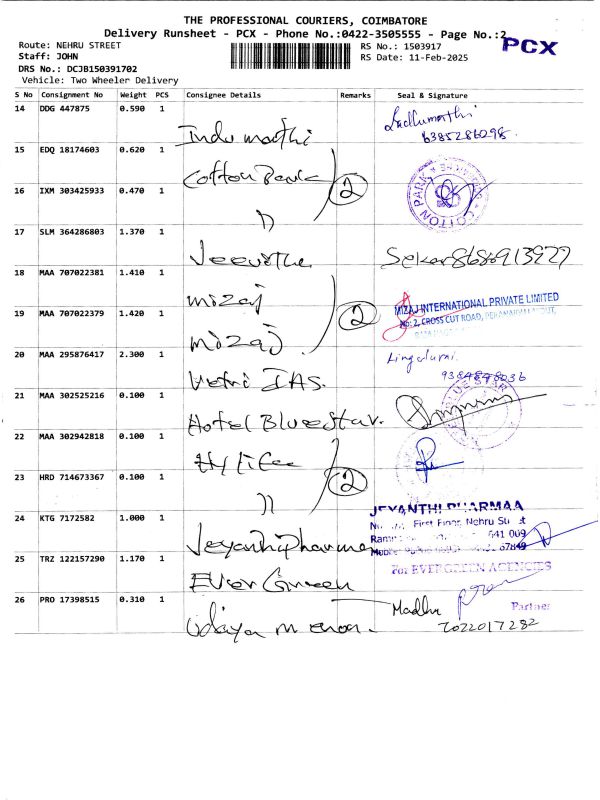 THE PROFESSIONAL COURIERS, COIMBATORE
Delivery Runsheet - PCX - Phone No.:0422-3505555 - Page No.:2
PCX
Route: NEHRU STREET
RS No.: 1503917
Staff: JOHN
RS Date: 11-Feb-2025
DRS No.: DCJB150391702
Vehicle: Two Wheeler Delivery
S No Consignment No Weight PCS Consignee Details Remarks Seal & Signature
14 DDG 447875 0.590 1 Indu mathi
6385286098
15 EDQ 18174603 0.620 1 Cotton Park
2
COTTON PARK
16 IXM 303425933 0.470 1 "
17 SLM 364286803 1.370 1 Jeevitha Sekar 8686913927
18 MAA 707022381 1.410 1 mizaj
2
MIZAJ INTERNATIONAL PRIVATE LIMITED
NO: 2, CROSS CUT ROAD,
19 MAA 707022379 1.420 1 mizaj
20 MAA 295876417 2.300 1 Vetri IAS.
9384898036
21 MAA 302525216 0.100 1 Hotel Blue Star.
BLUE STAR
22 MAA 302942818 0.100 1
2
23 HRD 714673367 0.100 1 "
24 KTG 7172582 1.000 1 Jeyanthi pharmaa
JEYANTHI PHARMAA
First Floor, Nehru Street
641 009
67849
25 TRZ 122157290 1.170 1 Ever Green
For EVERGREEN AGENCIES
Partner
26 PRO 17398515 0.310 1 Udaya m
Madhu
7022017282